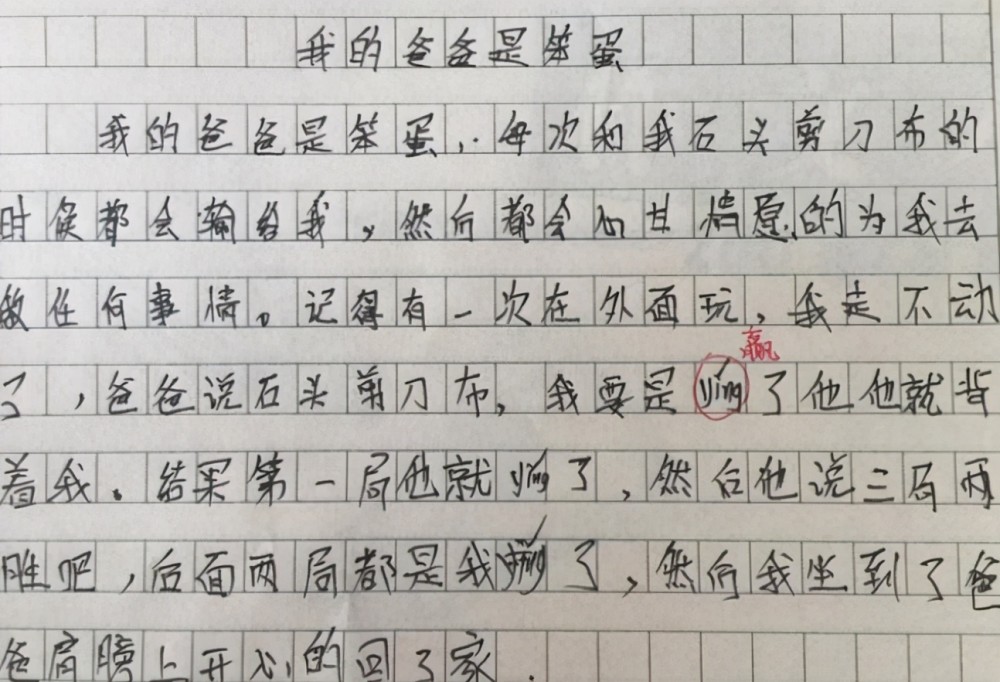 我的爸爸是笨蛋
我的爸爸是笨蛋,.每次和我石头剪刀布的
时候都会输给我,然后都会心甘情愿的为我去
做任何事情。记得有一次在外面玩,我走不动
赢
了,爸爸说石头剪刀布,我要是yíng了他他就背
着我。结果第一局他就yíng了,然后他说三局两
胜吧,后面两局都是我yíng了,然后我坐到了爸
爸肩膀上开心的回了家.